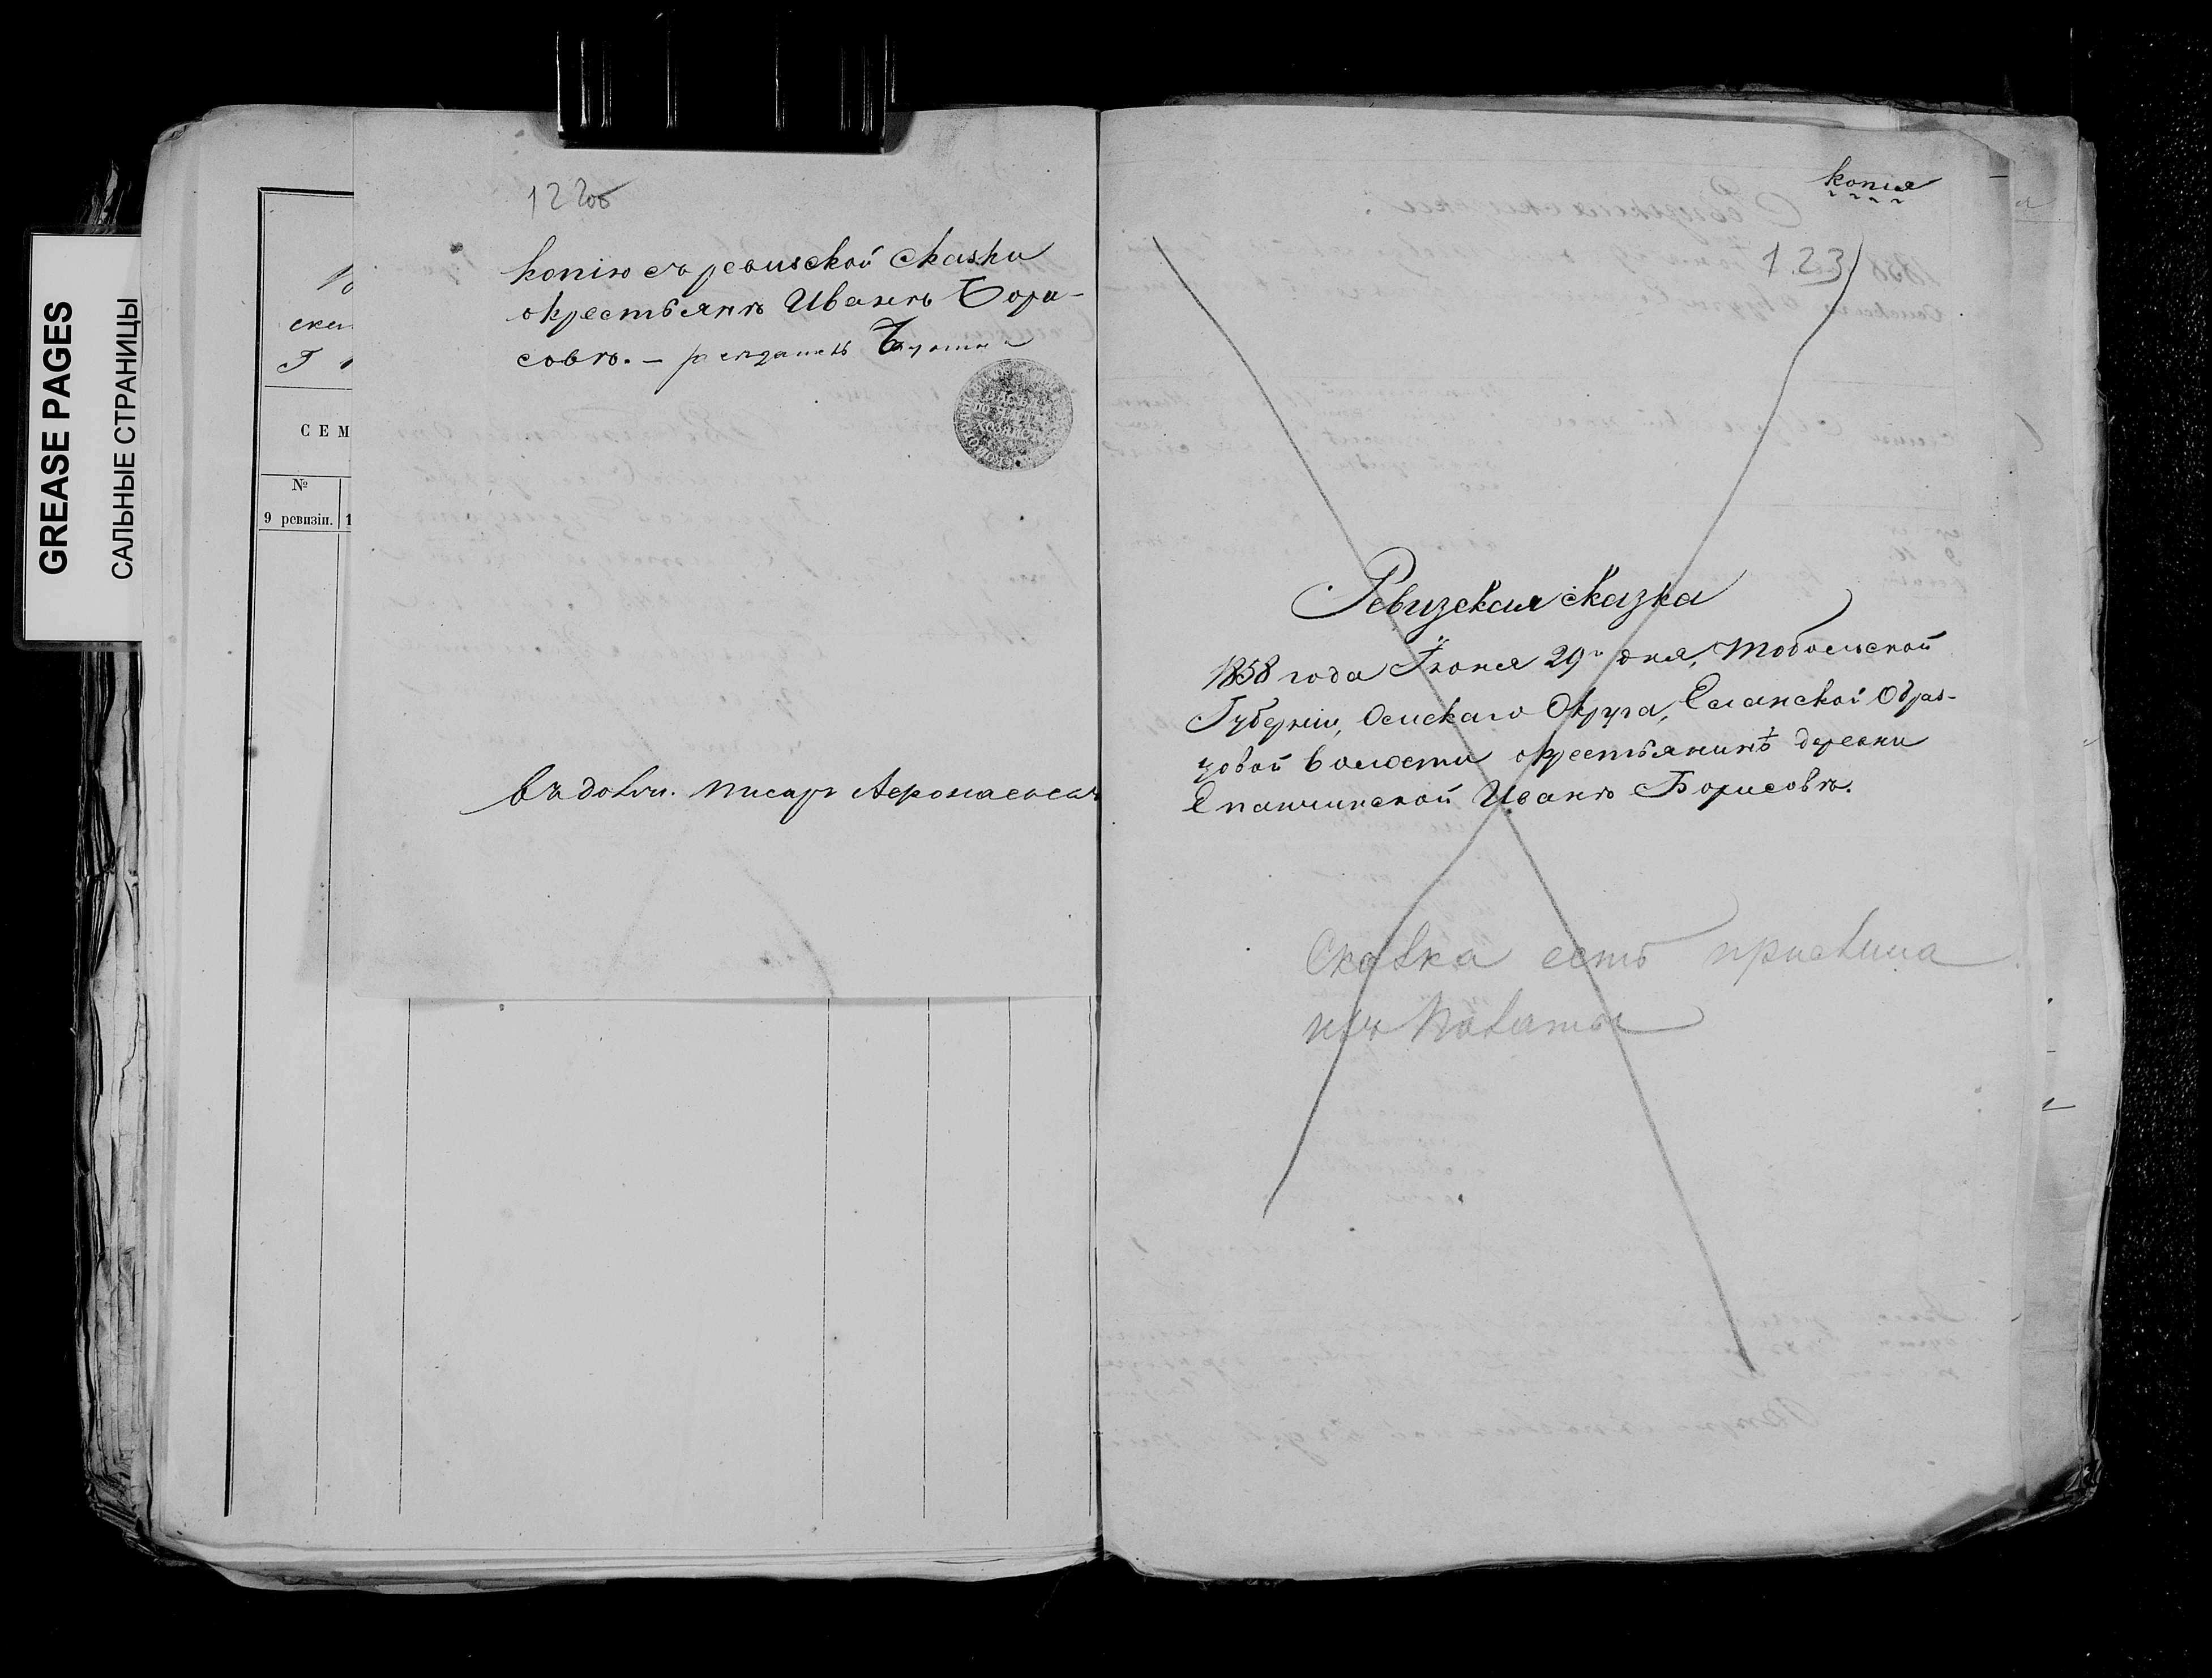 GREASE PAGES
САЛЬНЫЕ СТРАНИЦЫ
СЕМ
№
9 ревизіи. 1
122об
копію съ ревизской сказки
о крестьянѣ Иванѣ Бори-
совѣ. –
въ долж. писаря Афонасьевъ
копія
123
Ревизская сказка
1858 года Іюня 29 дня, Тобольской
Губерніи, Омскаго Округа, Еланской Образ-
цовой волости о крестьянинѣ деревни
Епанчинской Иванѣ Борисовѣ.
Сказка есть прислана
изъ Палаты